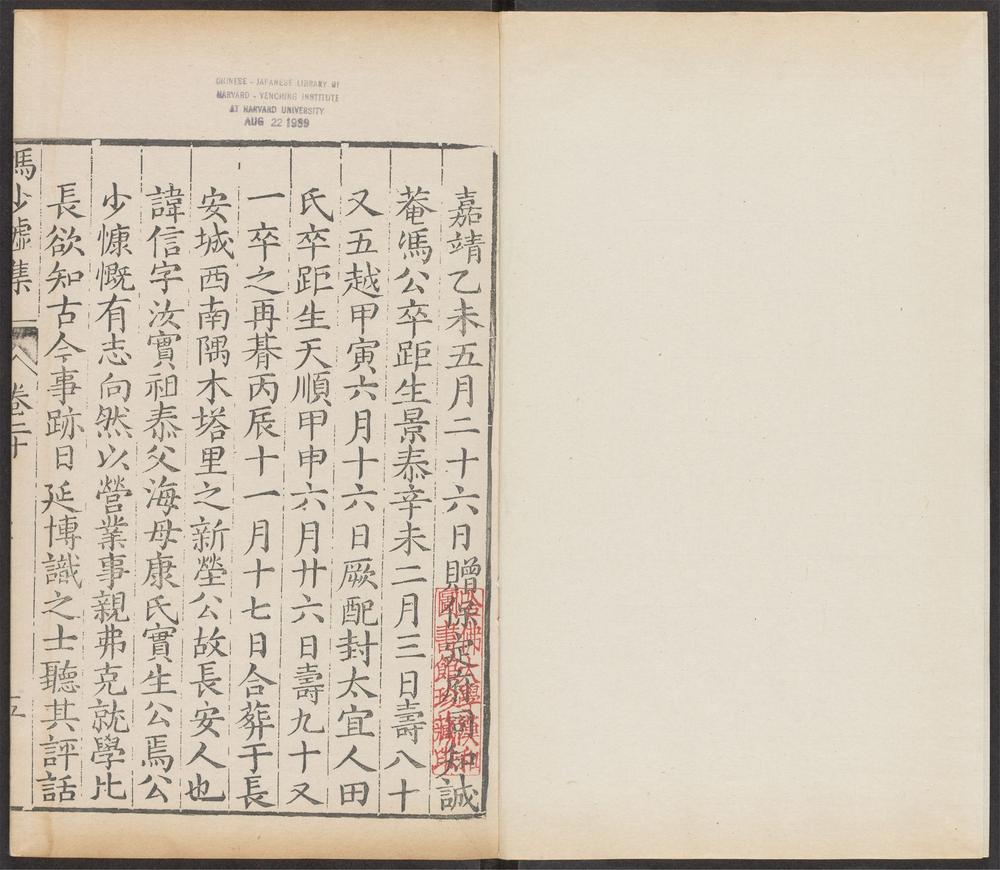 CHINESE - JAPANESE LIBRARY OF
HARVARD - YENCHING INSTITUTE
AT HARVARD UNIVERSITY
AUG 22 1939
嘉靖乙未五月二十六日贈保定府同知誠
菴馮公卒距生景泰辛未二月三日壽八十
又五越甲寅六月十六日厥配封太宜人田
氏卒距生天順甲申六月廿六日壽九十又
一卒之再朞丙辰十一月十七日合葬于長
安城西南隅木塔里之新塋公故長安人也
諱信字汝實祖泰父海母康氏實生公焉公
少慷慨有志向然以營業事親弗克就學比
長欲知古今事跡日延博識之士聽其評話
馮少墟集
卷二十
五
哈佛大學漢和
圖書館珍藏印